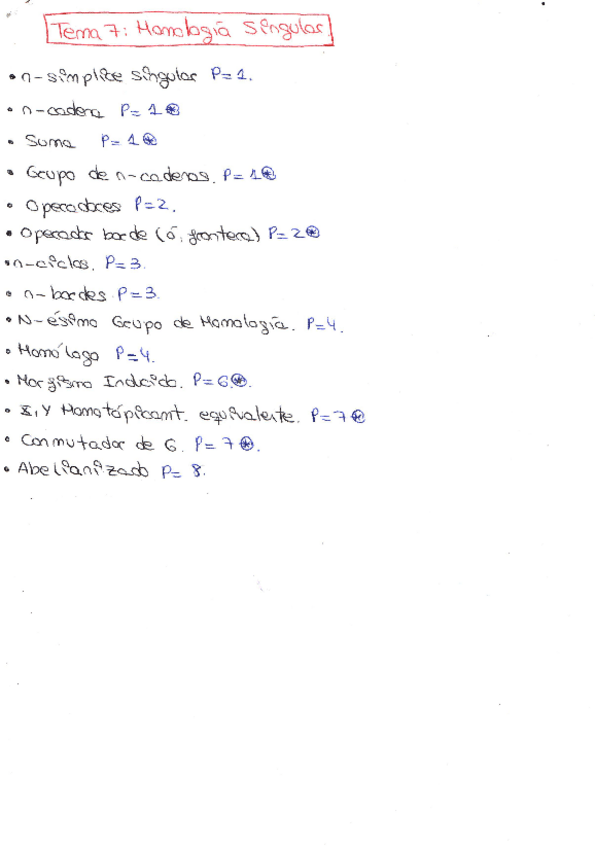 Tema 7: Homología Singular
• n-símplice singular P=1.
• n-cadena P=1 ⊛
• Suma P=1 ⊛
• Grupo de n-cadenas. P=1 ⊛
• Operadores P=2.
• Operador borde (ó, frontera) P=2 ⊛
• n-ciclos. P=3.
• n-bordes. P=3.
• N-ésimo Grupo de Homología. P=4.
• Homólogo P=4.
• Morfismo Inducido. P=6 ⊛.
• X, Y Homotópicamt. equivalente. P=7 ⊛
• Conmutador de G. P=7 ⊛.
• Abelianizado P=8.